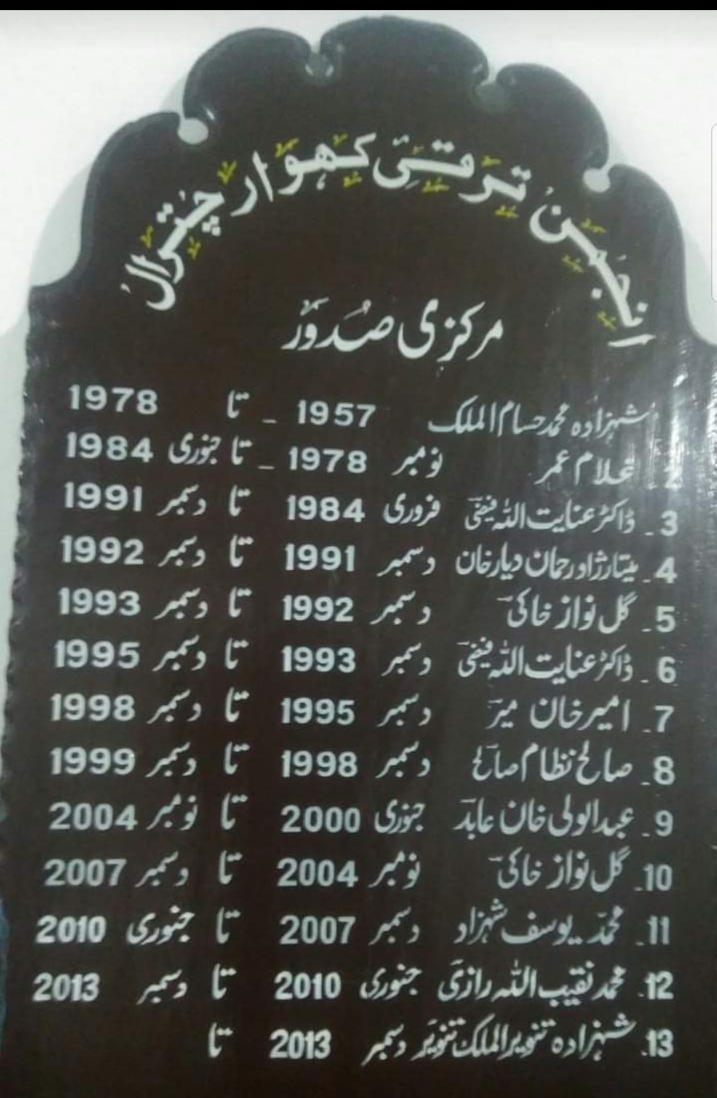 انجمن ترقیٔ کھوار چترال
مرکزی صدور
شہزادہ محمد حسام الملک 1957 ـ تا 1978
2 ـ غلام عمر نومبر 1978 ـ تا جنوری 1984
3 ـ ڈاکٹر عنایت اللہ فیضیؔ فروری 1984 تا دسمبر 1991
4 ـ میتارژاو رحمان دیار خان دسمبر 1991 تا دسمبر 1992
5 ـ گل نواز خاکیؔ دسمبر 1992 تا دسمبر 1993
6 ـ ڈاکٹر عنایت اللہ فیضیؔ دسمبر 1993 تا دسمبر 1995
7 ـ امیر خان میرؔ دسمبر 1995 تا دسمبر 1998
8 ـ صالح نظام صالحؔ دسمبر 1998 تا دسمبر 1999
9 ـ عبدالولی خان عابدؔ جنوری 2000 تا نومبر 2004
10 ـ گل نواز خاکیؔ نومبر 2004 تا دسمبر 2007
11 ـ محمد یوسف شہزاد دسمبر 2007 تا جنوری 2010
12 ـ محمد نقیب اللہ رازیؔ جنوری 2010 تا دسمبر 2013
13 ـ شہزادہ تنویر الملک تنویرؔ دسمبر 2013 تا